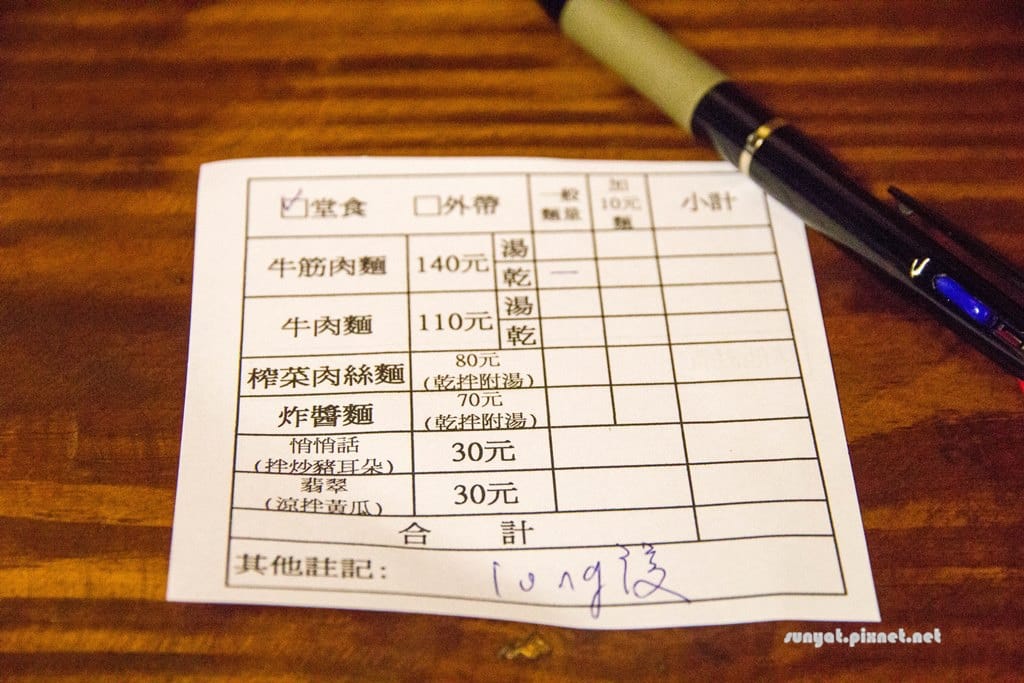 ☑堂食 □外帶 一般麵量 加10元麵 小計
牛筋肉麵 140元 湯
乾 一
牛肉麵 110元 湯
乾
榨菜肉絲麵 80元(乾拌附湯)
炸醬麵 70元(乾拌附湯)
悄悄話(拌炒豬耳朵) 30元
翡翠(涼拌黃瓜) 30元
合計
其他註記:
sunyat.pixnet.net